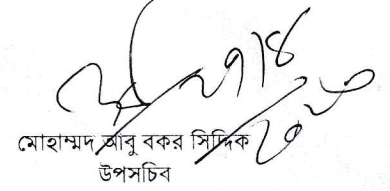 মোহাম্মদ আবু বকর সিদ্দিক
উপসচিব